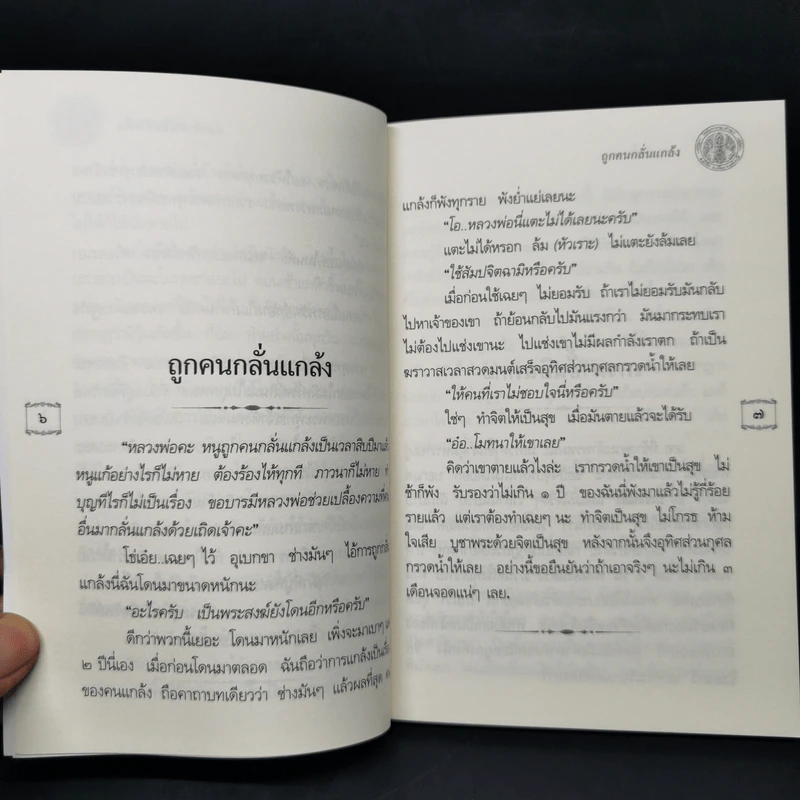 ถูกคนกลั่นแกล้ง
๖
“หลวงพ่อคะ หนูถูกคนกลั่นแกล้งเป็นเวลาสิบปีมาแล้ว
หนูแก้อย่างไรก็ไม่หาย ต้องร้องไห้ทุกที ภาวนาก็ไม่หาย
บุญที่ไรก็ไม่เป็นเรื่อง ขอบารมีหลวงพ่อช่วยเปลื้องความที่
อื่นมากลั่นแกล้งด้วยเถิดเจ้าคะ”
โซ่เอ๋ย..เฉยๆ ไว้ อุเบกขา ช่างมันๆ ไอ้การถูก
แกล้งนี่ฉันโดนมาขนาดหนักนะ
“อะไรครับ เป็นพระสงฆ์ยังโดนอีกหรือครับ”
ดีกว่าพวกนี้เยอะ โดนมาหนักเลย เพิ่งจะมาเบาๆ
๒ ปีนี่เอง เมื่อก่อนโดนมาตลอด ฉันถือว่าการแกล้งเป็น
ของคนแกล้ง ถือคาถาบทเดียวว่า ช่างมันๆ แล้วผลที่สุด
ถูกคนกลั่นแกล้ง
แกล้งก็พังทุกราย พังย่ำแย่เลยนะ
“โอ..หลวงพ่อนี่แตะไม่ได้เลยนะครับ”
แตะไม่ได้หรอก ล้ม (หัวเราะ) ไม่แตะยังล้มเลย
“ใช้สัมปจิตฉามิหรือครับ”
เมื่อก่อนใช้เฉยๆ ไม่ยอมรับ ถ้าเราไม่ยอมรับมันกลับ
ไปหาเจ้าของเขา ถ้าย้อนกลับไปมันแรงกว่า มันมากระทบเรา
ไม่ต้องไปแช่งเขานะ ไปแช่งเขาไม่มีผลกำลังเราตก ถ้าเป็น
ฆราวาสเวลาสวดมนต์เสร็จอุทิศส่วนกุศลกรวดน้ำให้เลย
“ให้คนที่เราไม่ชอบใจนี่หรือครับ”
๗
ใช่ๆ ทำจิตให้เป็นสุข เมื่อมันตายแล้วจะได้รับ
“อ๋อ..โมทนาให้เขาเลย”
คิดว่าเขาตายแล้วไงล่ะ เรากรวดน้ำให้เขาเป็นสุข ไม่
ช้าก็พัง รับรองว่าไม่เกิน ๑ ปี ของฉันนี่พังมาแล้วไม่รู้กี่ร้อย
รายแล้ว แต่เราต้องทำเฉยๆ นะ ทำจิตเป็นสุข ไม่โกรธ ห้าม
ใจเสีย บูชาพระด้วยจิตเป็นสุข หลังจากนั้นจึงอุทิศส่วนกุศล
กรวดน้ำให้เลย อย่างนี้ขอยืนยันว่าถ้าเอาจริงๆ นะไม่เกิน ๓
เดือนจอดแน่ๆ เลย.